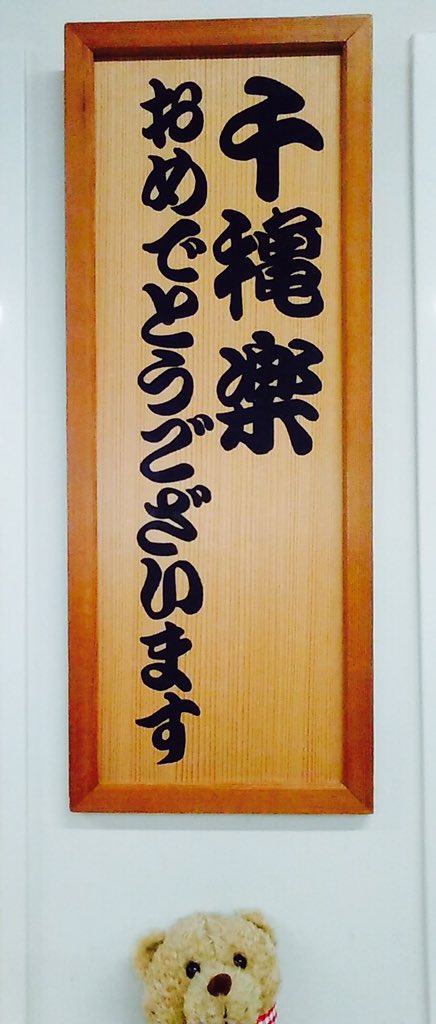 千穐楽
おめでとうございます